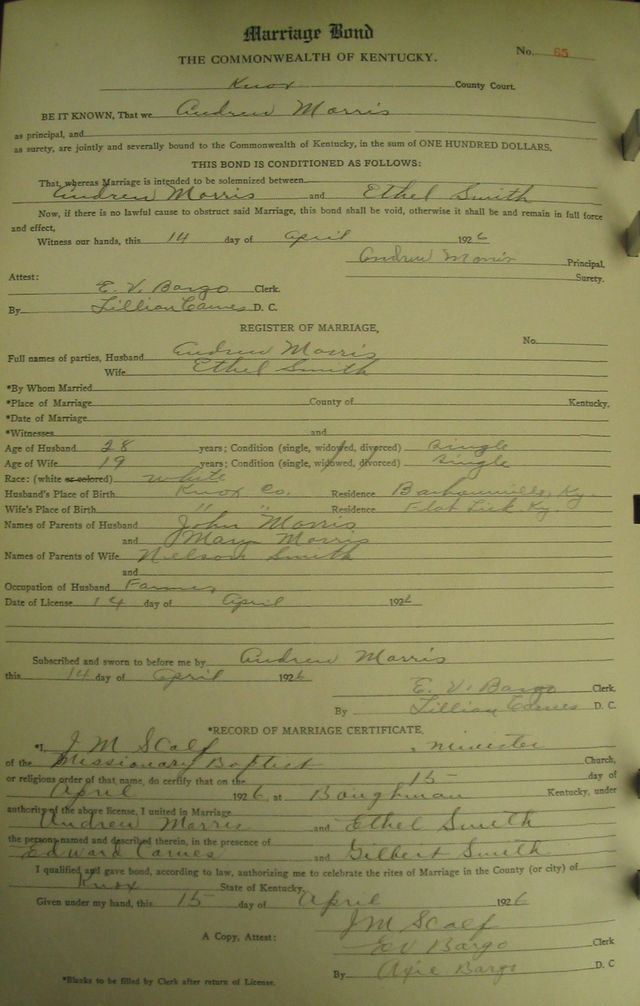 Marriage Bond
THE COMMONWEALTH OF KENTUCKY.
No. 65
Knox County Court.
BE IT KNOWN, That we Andrew Morris
as principal, and
as surety, are jointly and severally bound to the Commonwealth of Kentucky, in the sum of ONE HUNDRED DOLLARS.
THIS BOND IS CONDITIONED AS FOLLOWS:
That, whereas Marriage is intended to be solemnized between
Andrew Morris and Ethel Smith
Now, if there is no lawful cause to obstruct said Marriage, this bond shall be void, otherwise it shall be and remain in full force
and effect,
Witness our hands, this 14 day of April 1926
Andrew Morris Principal,
Surety.
Attest:
E. V. Bargo Clerk.
By Lillian Carnes D. C.
REGISTER OF MARRIAGE,
No.
Full names of parties, Husband Andrew Morris
Wife Ethel Smith
*By Whom Married
*Place of Marriage County of Kentucky,
*Date of Marriage
*Witnesses and
Age of Husband 28 years; Condition (single, widowed, divorced) Single
Age of Wife 19 years; Condition (single, widowed, divorced) Single
Race: (white or colored) white
Husband's Place of Birth Knox Co. Residence Barbourville, Ky.
Wife's Place of Birth " " Residence Flat Lick, Ky.
Names of Parents of Husband John Morris
and Mary Morris
Names of Parents of Wife Nelson Smith
and
Occupation of Husband Farmer
Date of License 14 day of April 1926
Subscribed and sworn to before me by Andrew Morris
this 14 day of April 1926
E. V. Bargo Clerk,
By Lillian Carnes D. C.
*RECORD OF MARRIAGE CERTIFICATE,
*I, J M Scalf, minister
of the Missionary Baptist Church,
or religious order of that name, do certify that on the 15 day of
April 1926, at Boughman Kentucky, under
authority of the above license, I united in Marriage
Andrew Morris and Ethel Smith
the persons named and described therein, in the presence of
Edward Carnes and Gilbert Smith
I qualified and gave bond, according to law, authorizing me to celebrate the rites of Marriage in the County (or city) of
Knox State of Kentucky,
Given under my hand, this 15 day of April 1926
J M Scalf
A Copy, Attest: E V Bargo Clerk
By Axie Bargo D. C
*Blanks to be filled by Clerk after return of License.